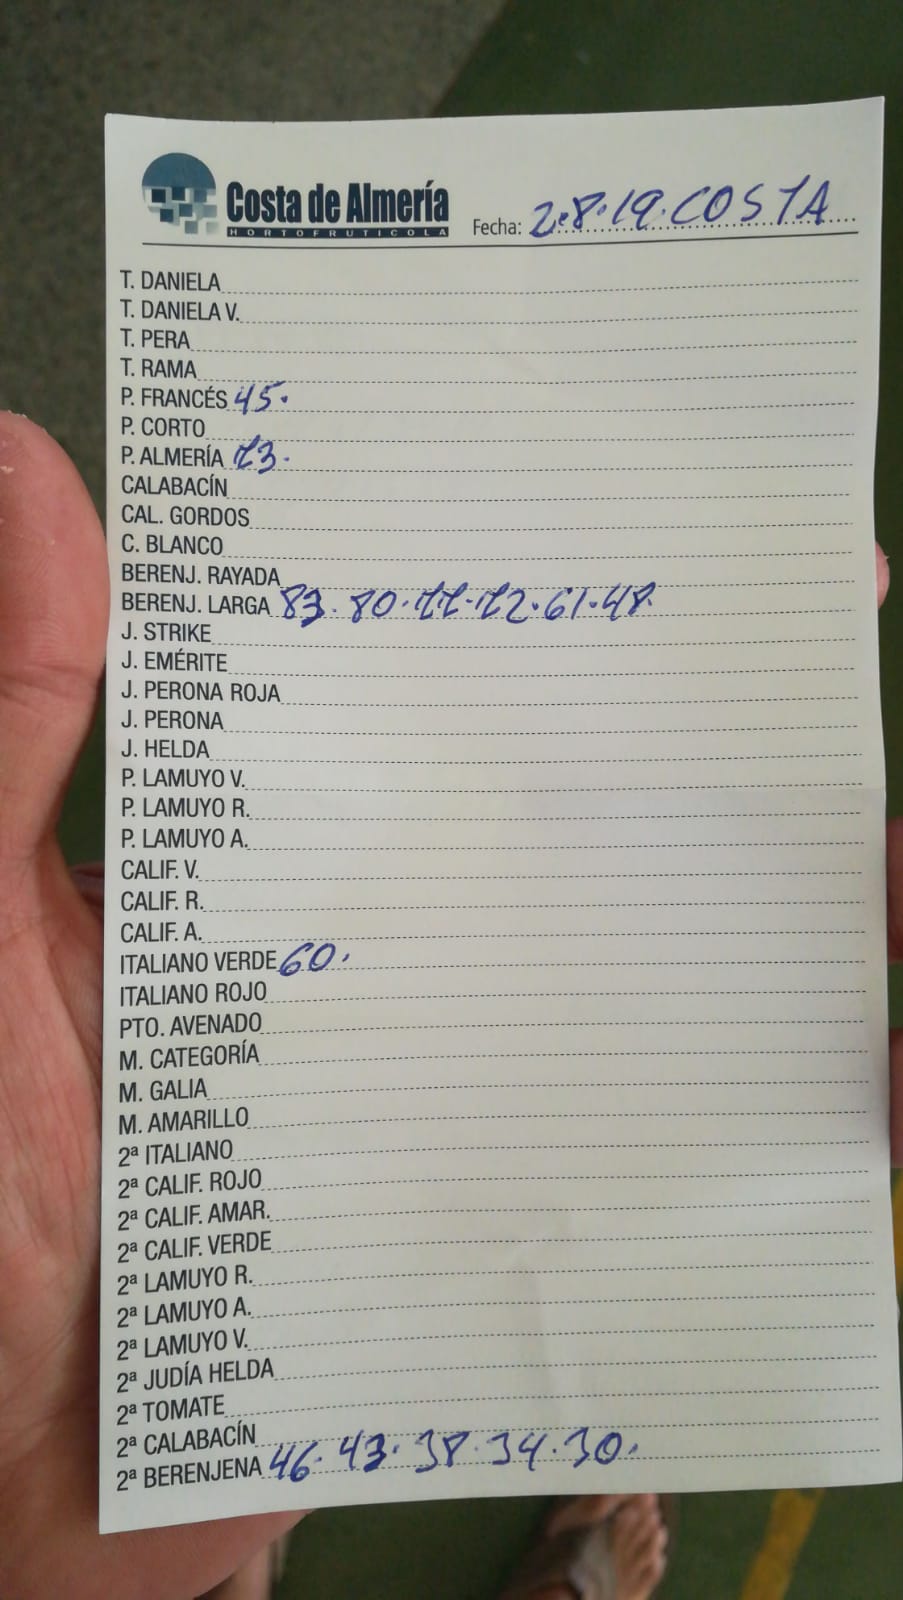 Costa de Almería
HORTOFRUTICOLA
Fecha: 2.8.19.COSTA
T. DANIELA
T. DANIELA V.
T. PERA
T. RAMA
P. FRANCÉS 45.
P. CORTO
P. ALMERÍA 73.
CALABACÍN
CAL. GORDOS
C. BLANCO
BERENJ. RAYADA
BERENJ. LARGA 83. 80. 77. 72. 61. 48.
J. STRIKE
J. EMÉRITE
J. PERONA ROJA
J. PERONA
J. HELDA
P. LAMUYO V.
P. LAMUYO R.
P. LAMUYO A.
CALIF. V.
CALIF. R.
CALIF. A.
ITALIANO VERDE 60.
ITALIANO ROJO
PTO. AVENADO
M. CATEGORÍA
M. GALIA
M. AMARILLO
2ª ITALIANO
2ª CALIF. ROJO
2ª CALIF. AMAR.
2ª CALIF. VERDE
2ª LAMUYO R.
2ª LAMUYO A.
2ª LAMUYO V.
2ª JUDÍA HELDA
2ª TOMATE
2ª CALABACÍN
2ª BERENJENA 46. 43. 38. 34. 30.